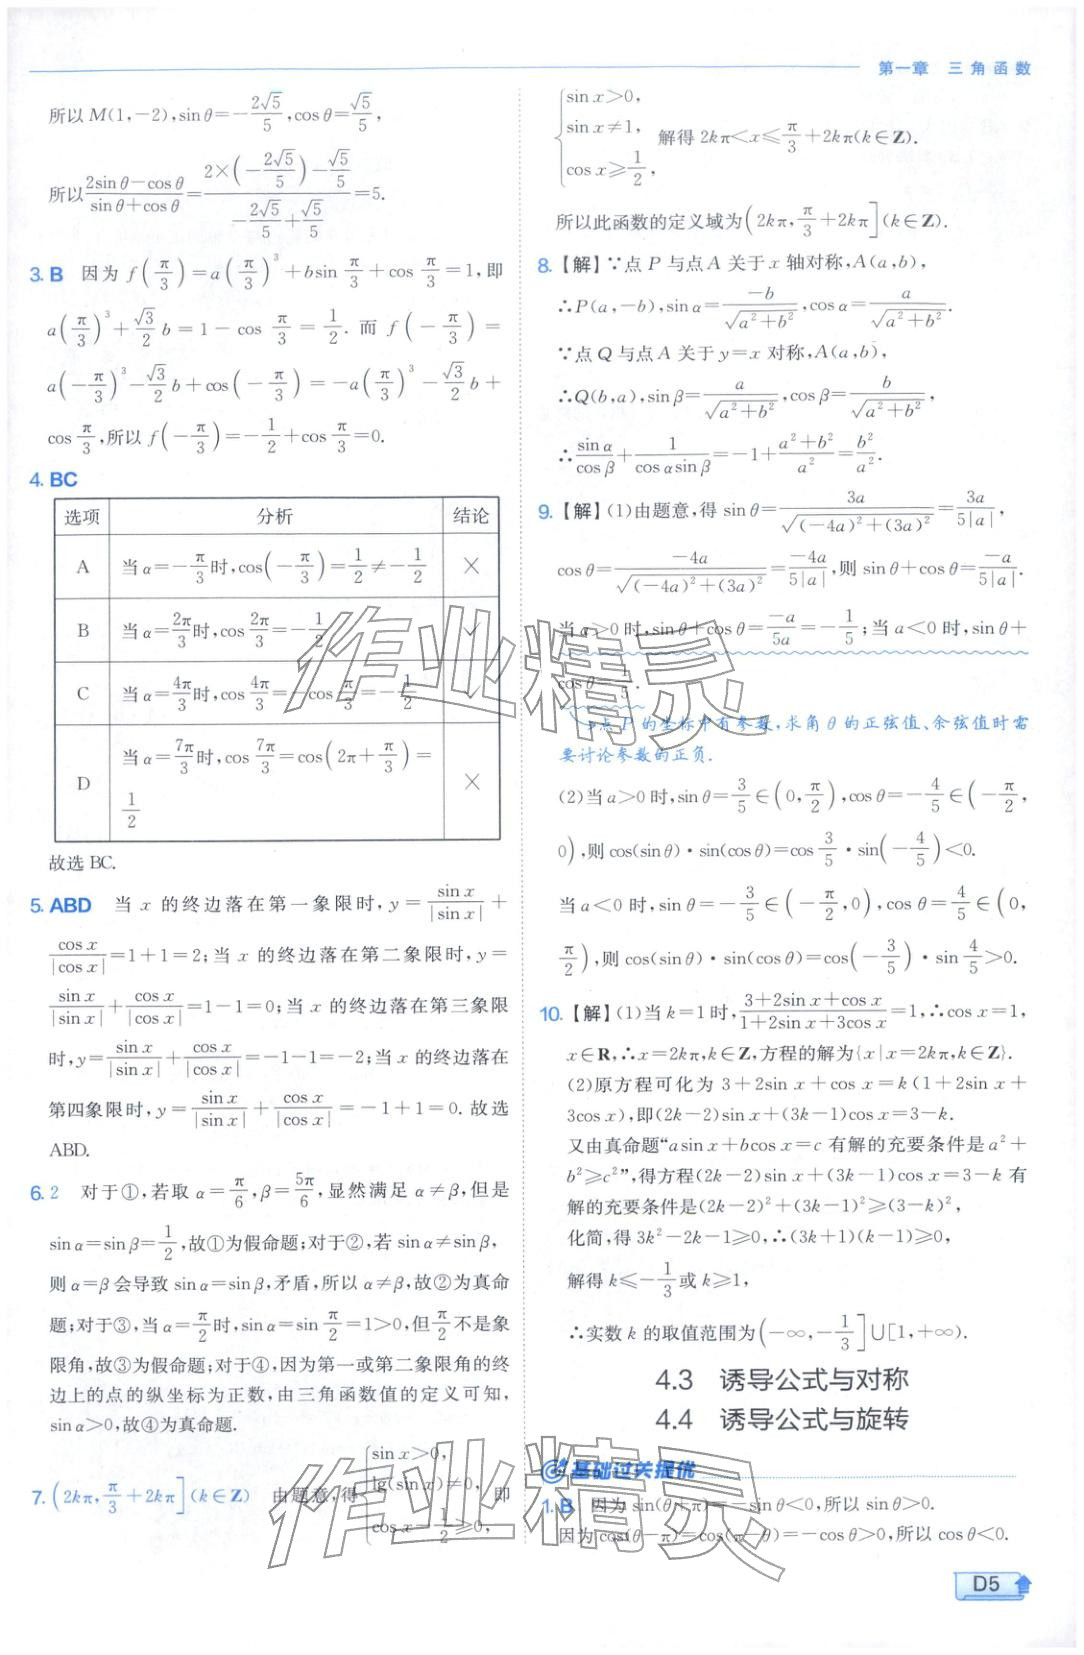 第一章 三角函数
所以 M(1,-2),sin θ=-2√5/5,cos θ=√5/5,
所以(2sin θ-cos θ)/(sin θ+cos θ)=(2×(-2√5/5)-√5/5)/(-2√5/5+√5/5)=5.
3. B 因为 f(π/3)=a(π/3)³+bsin π/3+cos π/3=1,即
a(π/3)³+√3/2 b=1-cos π/3=1/2. 而 f(-π/3)=
a(-π/3)³-√3/2 b+cos(-π/3)=-a(π/3)³-√3/2 b+
cos π/3,所以 f(-π/3)=-1/2+cos π/3=0.
4. BC
选项 分析 结论
A 当 α=-π/3时,cos(-π/3)=1/2≠-1/2 ×
B 当 α=2π/3时,cos 2π/3=-1/2 √
C 当 α=4π/3时,cos 4π/3=-cos π/3=-1/2
D 当 α=7π/3时,cos 7π/3=cos(2π+π/3)= ×
1/2
故选 BC.
5. ABD 当 x 的终边落在第一象限时,y=sin x/|sin x|+
cos x/|cos x|=1+1=2;当 x 的终边落在第二象限时,y=
sin x/|sin x|+cos x/|cos x|=1-1=0;当 x 的终边落在第三象限
时,y=sin x/|sin x|+cos x/|cos x|=-1-1=-2;当 x 的终边落在
第四象限时,y=sin x/|sin x|+cos x/|cos x|=-1+1=0. 故选
ABD.
6. 2 对于①,若取 α=π/6,β=5π/6,显然满足 α≠β,但是
sin α=sin β=1/2,故①为假命题;对于②,若 sin α≠sin β,
则 α=β 会导致 sin α=sin β,矛盾,所以 α≠β,故②为真命
题;对于③,当 α=π/2时,sin α=sin π/2=1>0,但π/2不是象
限角,故③为假命题;对于④,因为第一或第二象限角的终
边上的点的纵坐标为正数,由三角函数值的定义可知,
sin α>0,故④为真命题.
7. (2kπ,π/3+2kπ](k∈Z) 由题意,得{sin x>0, lg(sin x)≠0, cos x-1/2≥0, 即
{sin x>0, sin x≠1, cos x≥1/2, 解得 2kπ<x≤π/3+2kπ(k∈Z).
所以此函数的定义域为(2kπ,π/3+2kπ](k∈Z).
8. 【解】∵点 P 与点 A 关于 x 轴对称,A(a,b),
∴P(a,-b),sin α=-b/√(a²+b²),cos α=a/√(a²+b²).
∵点 Q 与点 A 关于 y=x 对称,A(a,b),
∴Q(b,a),sin β=a/√(a²+b²),cos β=b/√(a²+b²),
∴sin α/cos β+1/(cos αsin β)=-1+(a²+b²)/a²=b²/a².
9. 【解】(1)由题意,得 sin θ=3a/√((-4a)²+(3a)²)=3a/(5|a|),
cos θ=-4a/√((-4a)²+(3a)²)=-4a/(5|a|),则 sin θ+cos θ=-a/(5|a|).
当 a>0 时,sin θ+cos θ=-a/5a=-1/5;当 a<0 时,sin θ+
cos θ=1/5.
点 P 的坐标中有参数,求角 θ 的正弦值、余弦值时需
要讨论参数的正负.
(2)当 a>0 时,sin θ=3/5∈(0,π/2),cos θ=-4/5∈(-π/2,
0),则 cos(sin θ)·sin(cos θ)=cos 3/5·sin(-4/5)<0.
当 a<0 时,sin θ=-3/5∈(-π/2,0),cos θ=4/5∈(0,
π/2),则 cos(sin θ)·sin(cos θ)=cos(-3/5)·sin 4/5>0.
10. 【解】(1)当 k=1 时,(3+2sin x+cos x)/(1+2sin x+3cos x)=1,∴cos x=1,
x∈R,∴x=2kπ,k∈Z,方程的解为{x|x=2kπ,k∈Z}.
(2)原方程可化为 3+2sin x+cos x=k(1+2sin x+
3cos x),即(2k-2)sin x+(3k-1)cos x=3-k.
又由真命题“asin x+bcos x=c 有解的充要条件是 a²+
b²≥c²”,得方程(2k-2)sin x+(3k-1)cos x=3-k 有
解的充要条件是(2k-2)²+(3k-1)²≥(3-k)²,
化简,得 3k²-2k-1≥0,∴(3k+1)(k-1)≥0,
解得 k≤-1/3或 k≥1,
∴实数 k 的取值范围为(-∞,-1/3]∪[1,+∞).
4.3 诱导公式与对称
4.4 诱导公式与旋转
基础过关提优
1. B 因为 sin(θ+π)=-sin θ<0,所以 sin θ>0.
因为 cos(θ-π)=cos(π-θ)=-cos θ>0,所以 cos θ<0.
D5
作业精灵
作业精灵